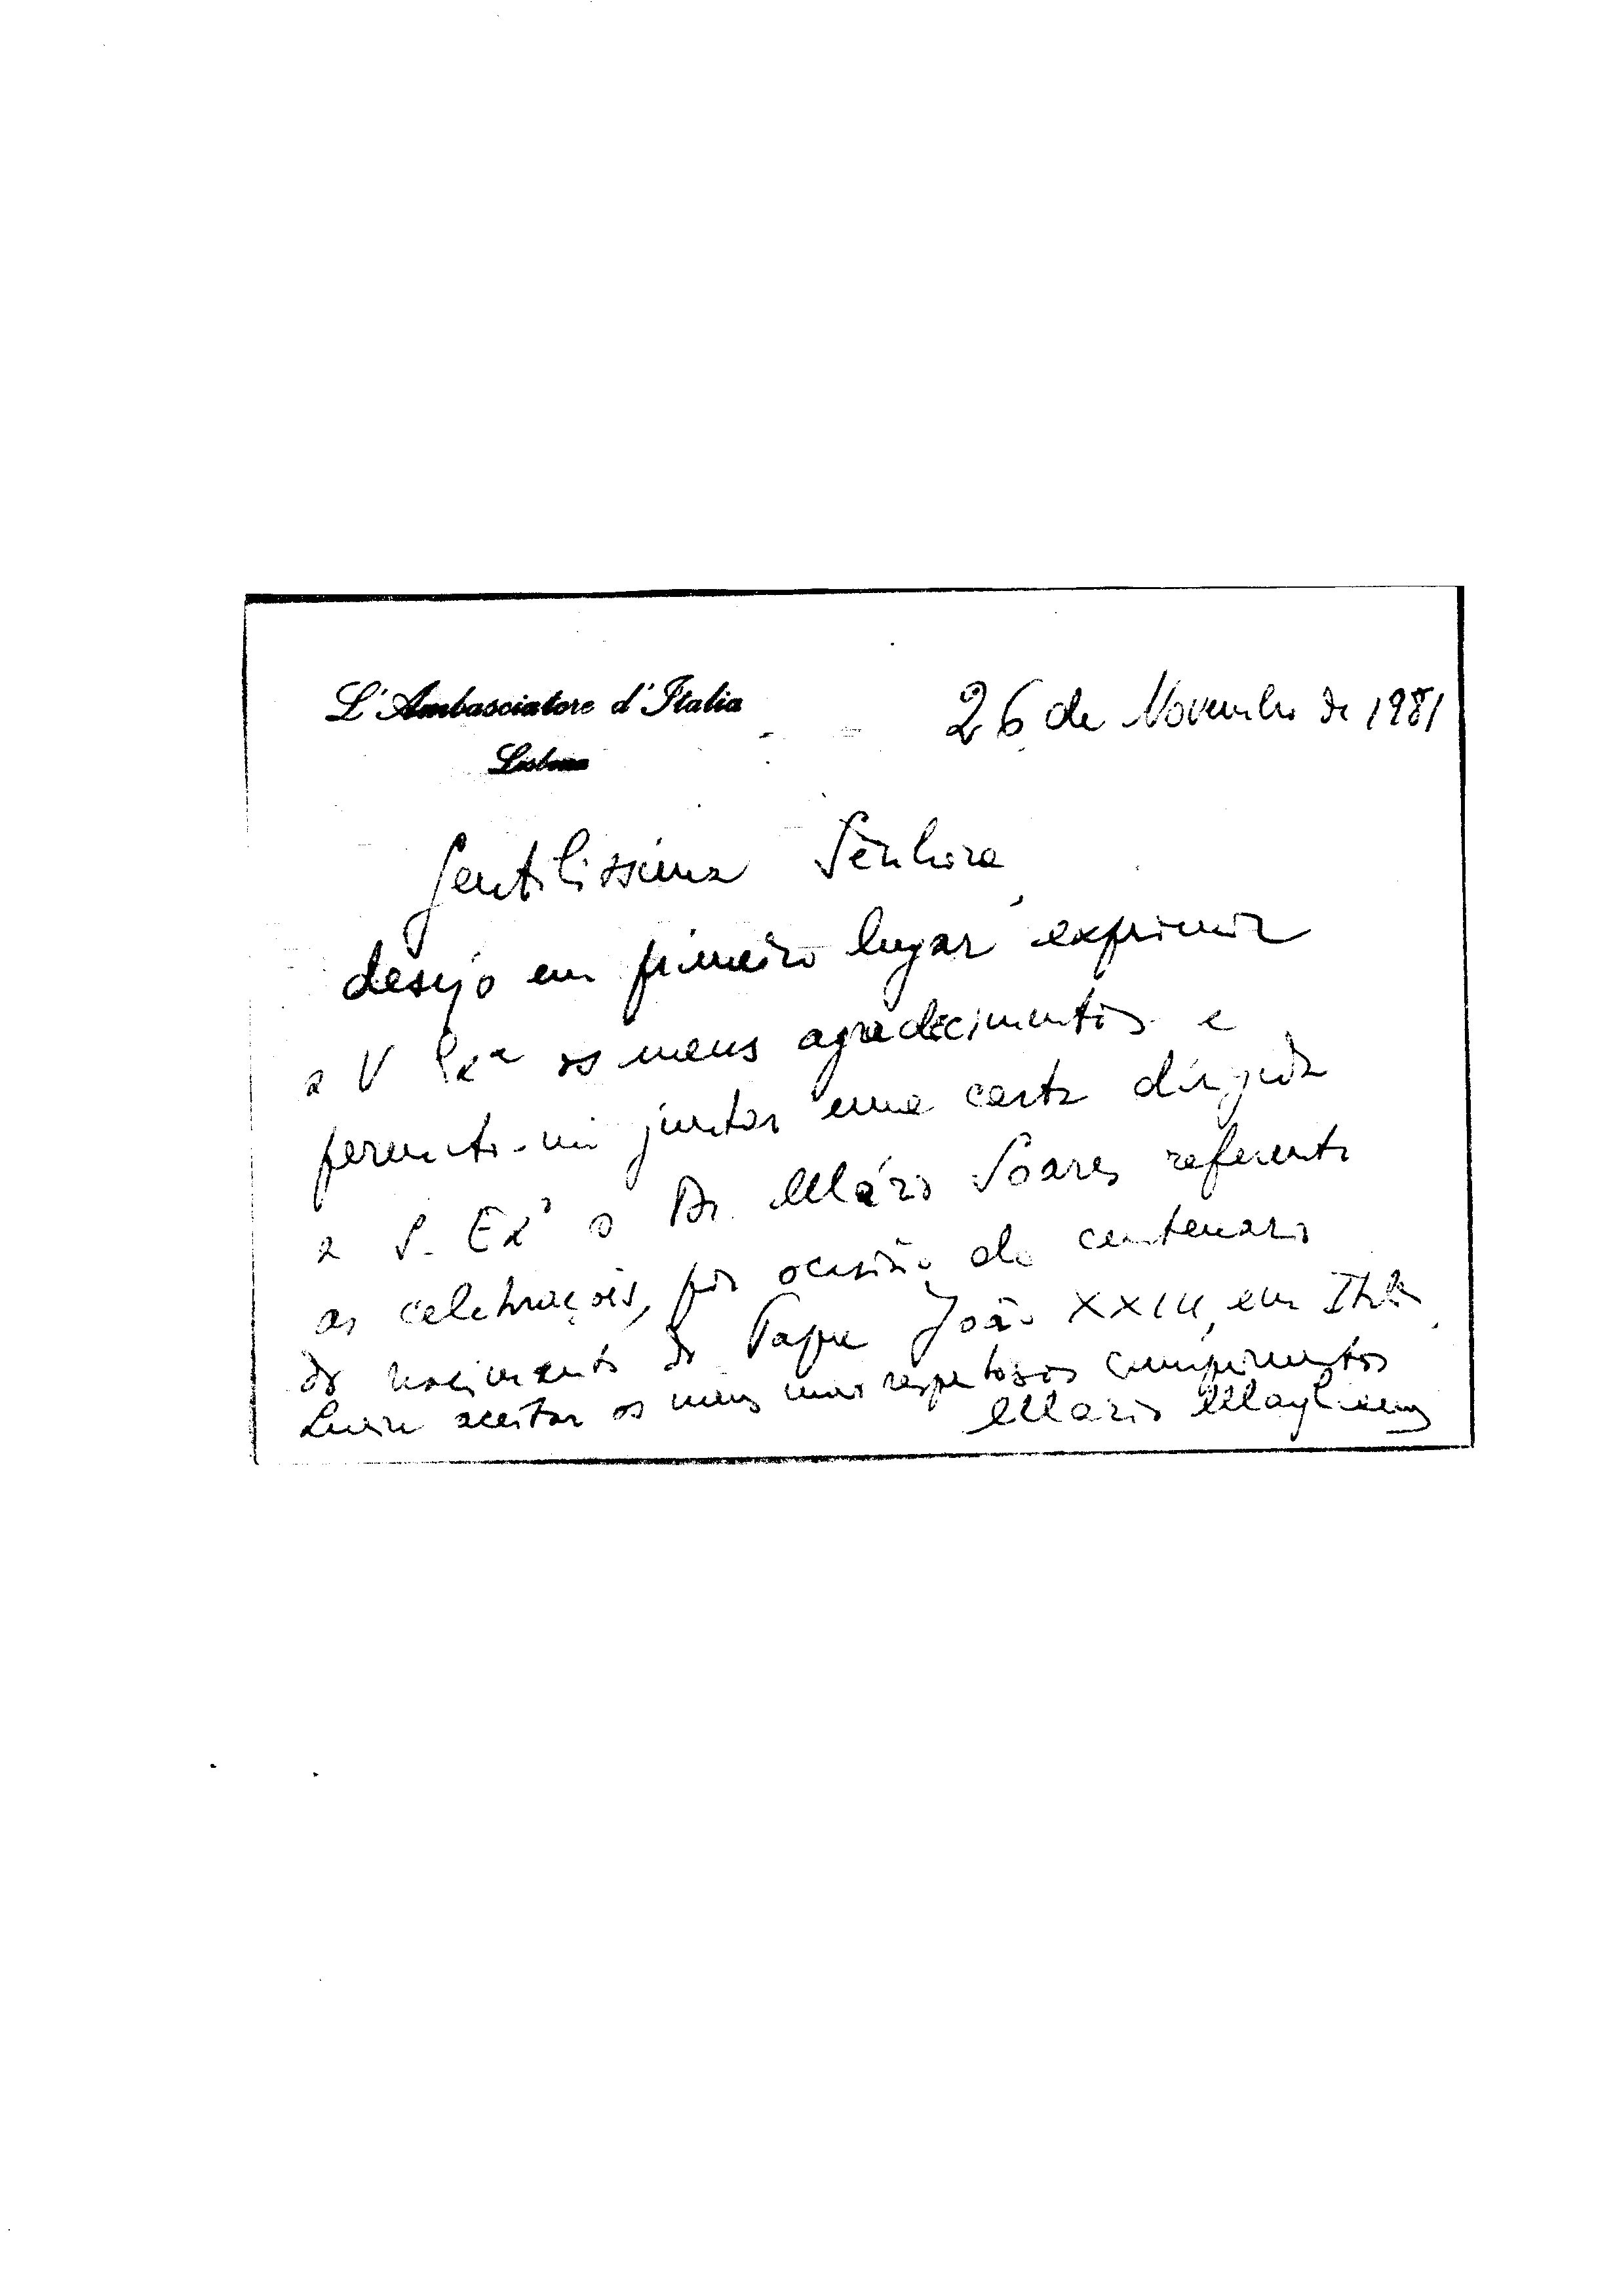 L'Ambasciatore d'Italia
Lisbona
26 de Novembro de 1981
Gentilissima Senhora,
desejo em primeiro lugar exprimir
a V Exª os meus agradecimentos e
permito-me juntar uma carta dirigida
a S. Exª o Dr. Mário Soares referente
as celebrações, por ocasião do centenario
do nascimento do Papa João XXIII, em Italia.
aceitar os meus mais respeitosos cumprimentos
Mario